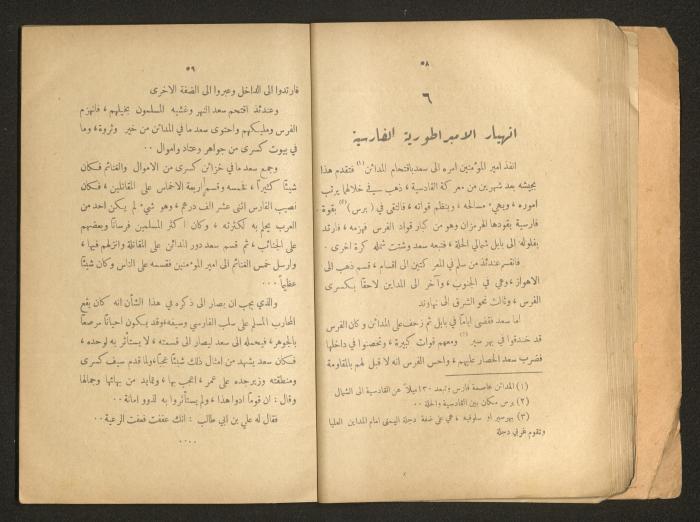 ٥٨
٦
انهيار الامبراطورية الفارسية
انفذ امير المؤمنين امره الى سعد باقتحام المدائن (١) فتقدم هذا
بجيشه بعد شهرين من معركة القادسية ، ذهب في خلالها يرتب
اموره ، ويعيء مسالحه ، وينظم قواته ، فالتقى في ( برس ) (٢) بقوة
فارسية يقودها الهرمزان وهو من كبار قواد الفرس فهزمه ، فارتد
بفلوله الى بابل شمالي الحلة ، فتبعه سعد وشتت شمله كرة اخرى .
فانقسم عندئذ من سلم في المعركتين الى اقسام ، قسم ذهب الى
الاهواز ، وهي في الجنوب ، وآخر الى المداين لاحقا بكسرى
الفرس ، وثالث نحو الشرق الى نهاوند
اما سعد فقضى اياماً في بابل ثم زحف على المدائن وكان الفرس
قد خندقوا في بهرسير (٣) ومعهم قوات كبيرة ، وتحصنوا في داخلها
فضرب سعد الحصار عليهم ، واحس الفرس انه لا قبل لهم بالمقاومة
(١) المدائن عاصمة فارس وتبعد ١٣٠ ميلاً عن القادسية الى الشمال
(٢) برس مكان بين القادسية والحلة ..
(٣) بهرسير او سلوقية ، هي على ضفة دجلة اليمنى امام المداين العليا
وتقوم غربي دجلة
٥٩
فارتدوا الى الداخل وعبروا الى الضفة الاخرى
وعندئذ اقتحم سعد النهر وغشيه المسلمون بخيلهم ، فانهزم
الفرس ومليكهم واحتوى سعد ما في المدائن من خير وثروة ، وما
في بيوت كسرى من جواهر وعتاد واموال ..
وجمع سعد ما في خزائن كسرى من الاموال والغنائم فكان
شيئاً كثيراً ، فخمسه وقسم اربعة الاخماس على المقاتلين ، فكان
نصيب الفارس اثنى عشر الف درهم ، وهو شيء لم يكن احد من
العرب يحلم به لكثرته ، وكان اكثر المسلمين فرساناً وبعضهم
على الجنائب ، ثم قسم سعد دور المدائن على المقاتلة وانزلهم فيها ،
وارسل خمس الغنائم الى امير المؤمنين فقسمه على الناس وكان شيئاً
عظيماً ...
والذي يجب ان يصار الى ذكره في هذا الشأن انه كان يقع
المحارب المسلم على سلب الفارسي وسيفه ، وقد يكون احياناً مرصعاً
بالجوهر ، فيحمله الى سعد ليصار الى قسمته ، لا يستأثر به لوحده ،
فكان سعد يشهد من امثال ذلك شيئاً عجباً ، ولما قدم سيف كسرى
ومنطقته وزبرجده على عمر ، اعجب بها ، وتمايد من بهائها وجمالها
وقال : ان قوماً ادوا هذا ، ولم يستأثروا به لذوو امانة ..
فقال له علي بن ابي طالب : انك عففت فعفت الرعية ..
....